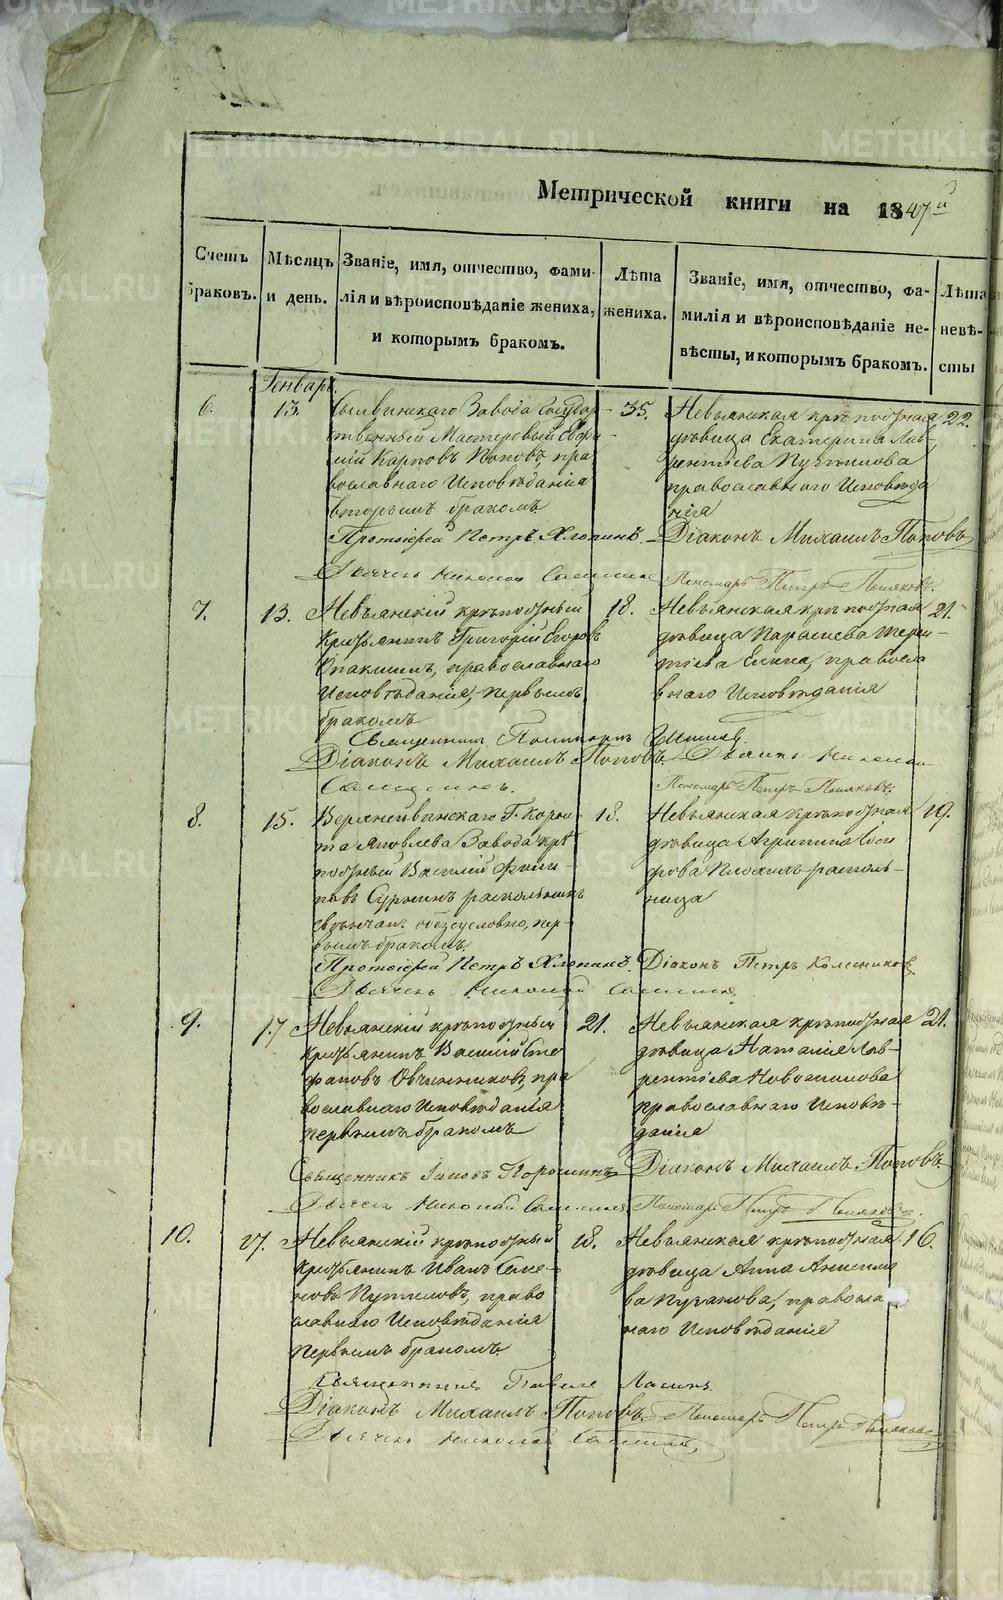 METRIKI.GASO-URAL.RU
Метрической книги на 1847й
Счетъ браковъ.
Мѣсяцъ и день.
Званіе, имя, отчество, фами-
лія и вѣроисповѣданіе жениха,
и которымъ бракомъ.
Лѣта
жениха.
Званіе, имя, отчество, фа-
милія и вѣроисповѣданіе не-
вѣсты, и которымъ бракомъ.
Лѣта
невѣ-
сты
Генварь.
6.
13.
Сылвинскаго Завода Государ-
ственный Мастеровый Евфи-
мій Карповъ Поповъ, пра
вославнаго Исповѣданія
вторымъ бракомъ
35.
Невьянская крѣпостная
дѣвица Екатерина Лав-
рентіева Путилова
православнаго Исповѣда
нія
22.
Протоіерей Петръ Хлопинъ.
Діаконъ Михаилъ Поповъ
Дьячекъ Николай
Пономарь Петръ Поляковъ.
7.
13.
Невьянскій крѣпостный
Крестьянинъ Григорій Егоровъ
православнаго
Исповѣданія, первымъ
бракомъ
18.
Невьянская крѣпостная
дѣвица Параскева Терен-
тіева православ
наго Исповѣданія
21.
Священникъ
Діаконъ Михаилъ Поповъ
Дьячекъ Николай
Пономарь Петръ Поляковъ.
8.
15.
Верхнейвинскаго Г. Корни-
та Яковлева Завода крѣ
постный Василій Филип-
повъ раскольникъ
обезусловно, пер-
вымъ бракомъ.
18.
Невьянская крѣпостная
дѣвица Агрипина
расколь-
ница
19.
Протоіерей Петръ Хлопинъ.
Діаконъ Петръ Колесниковъ
Дьячекъ Николай
9.
17
Невьянскій крѣпостный
крестьянинъ Василій Сте
фановъ Овчинниковъ, пра
вославнаго Исповѣданія
первымъ бракомъ
21.
Невьянская крѣпостная
дѣвица Наталія Лав-
рентіева Новоселова
православнаго Исповѣ-
данія
21.
Священникъ Іаковъ Порошинъ
Діаконъ Михаилъ Поповъ
Дьячекъ Николай
Пономарь Петръ Поляковъ.
10.
27.
Невьянскій крѣпостный
крестьянинъ Иванъ Семе-
новъ Путиловъ, право
славнаго Исповѣданія
первымъ бракомъ.
18.
Невьянская крѣпостная
дѣвица Анна
ва православ
наго Исповѣданія
16.
Священникъ Павелъ
Діаконъ Михаилъ Поповъ.
Пономарь Петръ Поляковъ
Дьячекъ Николай